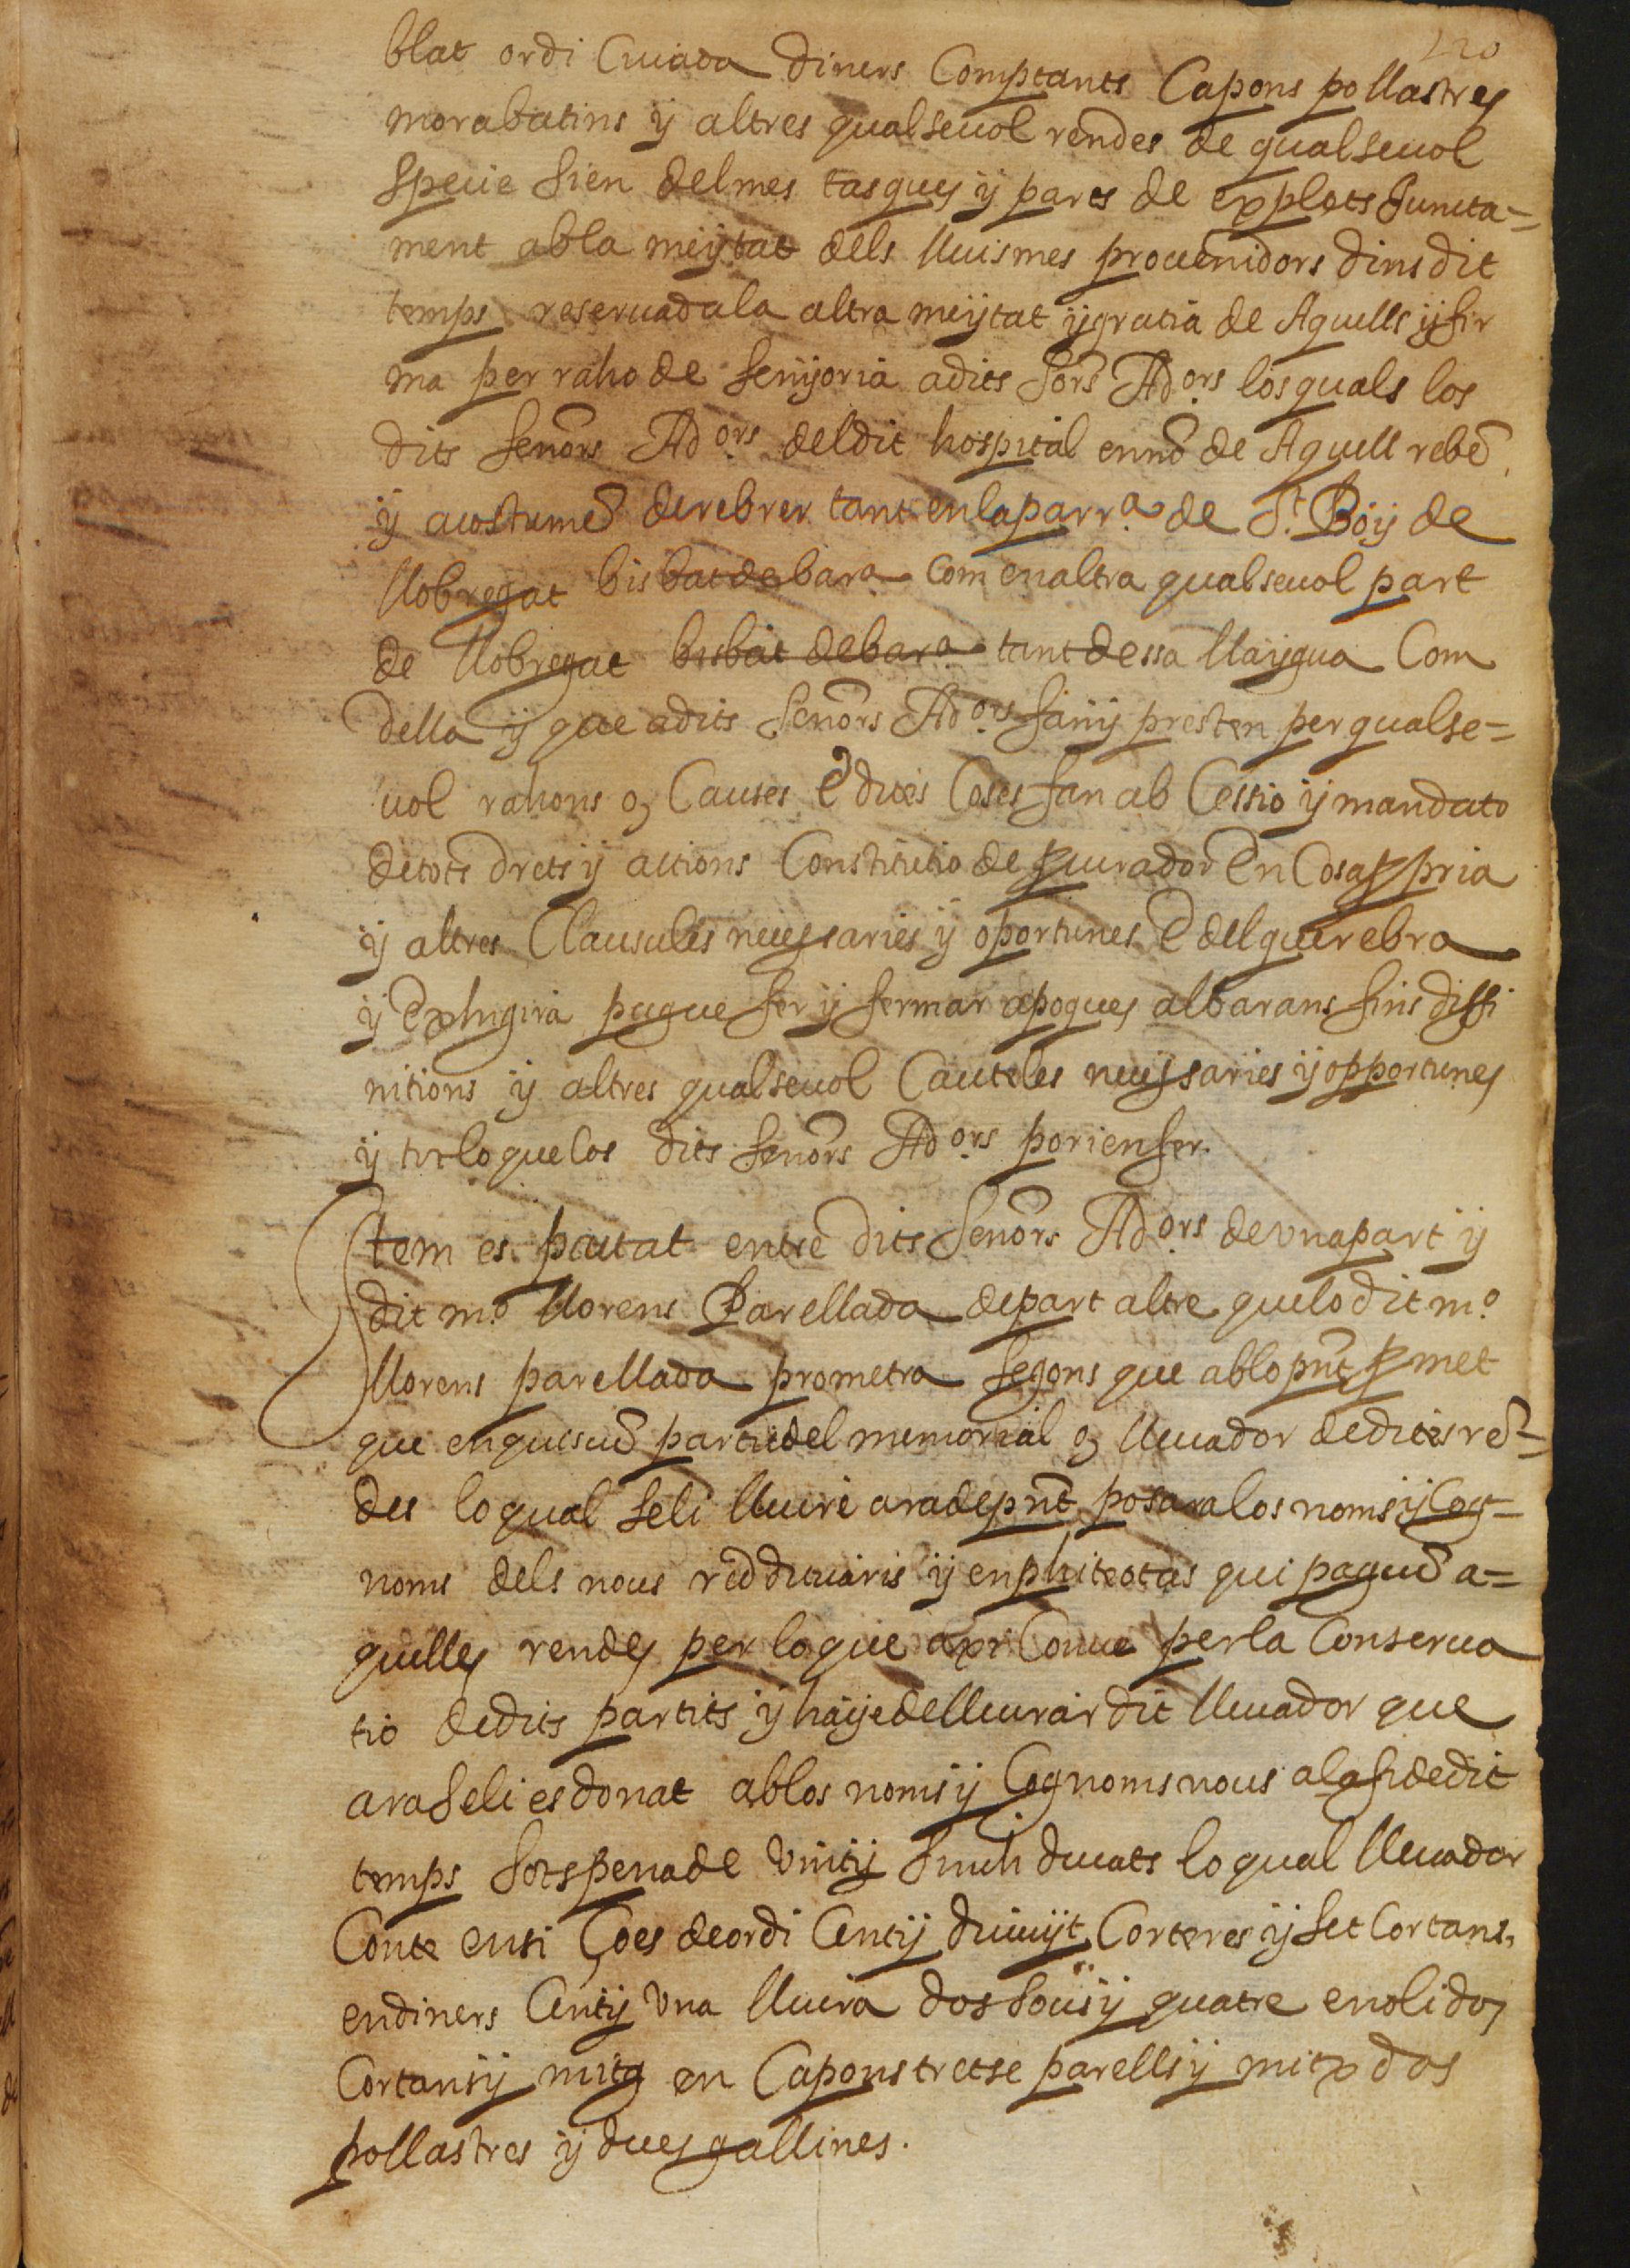 120
blat ordi Civada diners Comptants Capons pollastres
morabatins ÿ altres qualsevol rendes de qualsevol
Specie sien delmes tasques ÿ parts de explets Juncta=
ment abla meÿtat dels lluismes provenidors dins dit
temps reservadala altra meÿtat ÿgratia de Aquells ÿfir
ma per raho de senÿoria adits Sors Ad.ors losquals los
dits Senors Ad.ors deldit hospital ennõ de Aquell rebẽ
ÿ acostumẽ derebrer tant enlaparr.a de S.t Boÿ de
llobregat bisbatdebar.a Com enaltra qualsevol part
de llobregat bisbat debar.a tantdessa llaÿgua Com
della ÿ que adits Senors Ad.ors fan ÿ presten per qualse=
vol rahons o Causes E dites Coses fan ab Cessio ÿ mandato
detots drets ÿ actions Constitutio de pcurador En Cosa ppria
ÿ altres Clausules necessaries ÿ oportunes E delquerebra
ÿ Exhigira pugue fer ÿ fermar apoques albarans fins diffi
nitions ÿ altres qualsevol Cauteles necessaries ÿ opportunes
ÿ tot loquelos dits Senors Ad.ors porienfer.
Item es pactat entre dits Senors Ad.ors deunapart ÿ
dit m.o llorens Parellada depart altre quelo dit m.o
llorens parellada prometra segons que ablo pnt pmet
que enquiscuã partidel memorial o llevador dedites rẽ=
des loqual seli lliure aradepnt posara los noms ÿ Cog=
noms dels nous redditiaris ÿ enphiteotas qui paguẽ a=
quelles rendes per loque axi Conve perla Conserva
tio dedits partits ÿ haÿedelliurar dit llevador que
araseli esdonat ablos noms ÿ Cognoms nous alafidedit
temps sotspenade vint ÿ sinch ducats loqual llevador
Conte ensi Çoes deordi Centÿ divuÿt Corteres ÿ set Cortans,
endiners Centÿ una lliura dos sousÿ quatre enolidos
Cortansÿ mitg en Caponstretse parellsÿ mitx dos
pollastres ÿ dues gallines.